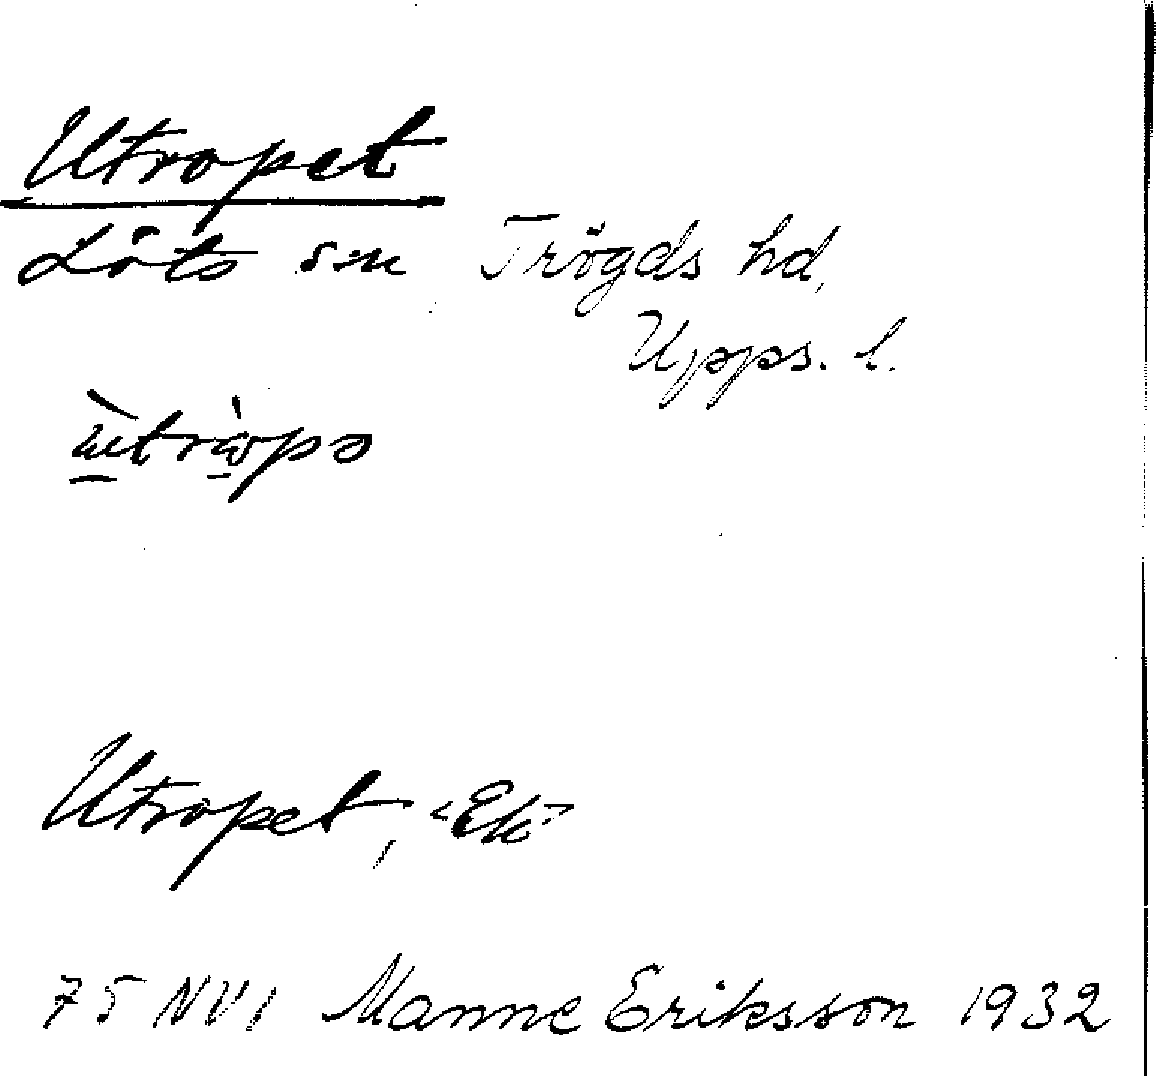 Utropet
Löts sn Trögds hd,
Upps. l.
Utropet, <Ek>
75 NV1 Manne Eriksson 1932